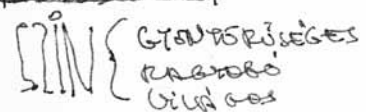 SZÍN { GYÖNYÖRŰSÉGES
RAGYOGÓ
VILÁGOS